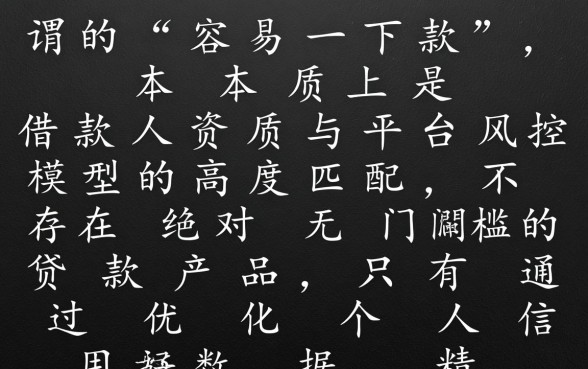 谓的“容易一下款”，
本 本 质上是
借款人资质与平台风控
模型的高度匹配，不
存在 绝对 无 门闌槛的
贷 款 产 品，只 有 通
过 优 化 个 人 信
用 数 据 精